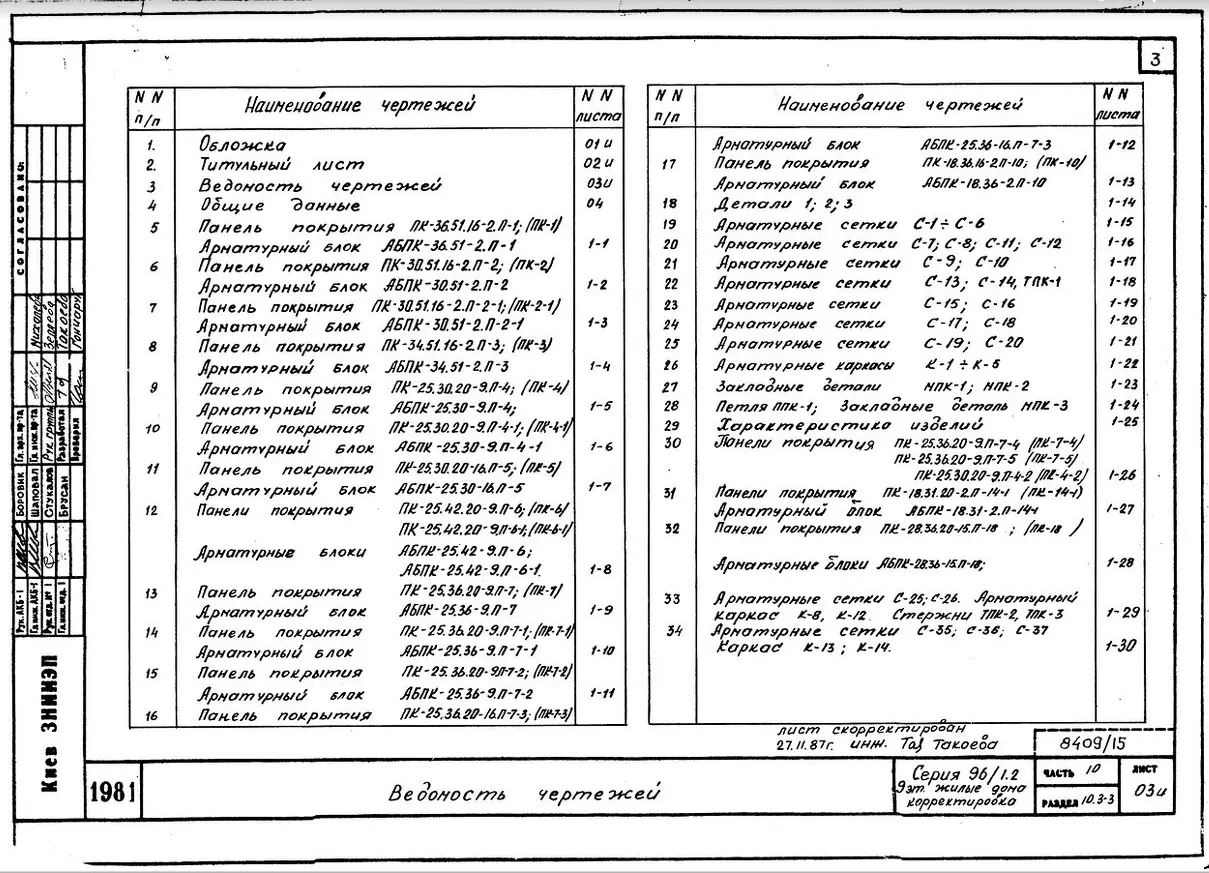 3
N N п/п Наименование чертежей N N листа
1. Обложка 01и
2. Титульный лист 02и
3 Ведомость чертежей 03и
4 Общие данные 04
5 Панель покрытия ПК-36.51.16-2.П-1; (ПК-1)
Арматурный блок АБПК-36.51-2.П-1 1-1
6 Панель покрытия ПК-30.51.16-2.П-2; (ПК-2)
Арматурный блок АБПК-30.51-2.П-2 1-2
7 Панель покрытия ПК-30.51.16-2.П-2-1; (ПК-2-1)
Арматурный блок АБПК-30.51-2.П-2-1 1-3
8 Панель покрытия ПК-34.51.16-2.П-3; (ПК-3)
Арматурный блок АБПК-34.51-2.П-3 1-4
9 Панель покрытия ПК-25.30.20-9.П-4; (ПК-4)
Арматурный блок АБПК-25.30-9.П-4; 1-5
10 Панель покрытия ПК-25.30.20-9.П-4-1; (ПК-4-1)
Арматурный блок АБПК-25.30-9.П-4-1 1-6
11 Панель покрытия ПК-25.30.20-16.П-5; (ПК-5)
Арматурный блок АБПК-25.30-16.П-5 1-7
12 Панели покрытия ПК-25.42.20-9.П-6; (ПК-6)
ПК-25.42.20-9.П-6-1; (ПК-6-1)
Арматурные блоки АБПК-25.42-9.П-6;
АБПК-25.42-9.П-6-1. 1-8
13 Панель покрытия ПК-25.36.20-9.П-7; (ПК-7)
Арматурный блок АБПК-25.36-9.П-7 1-9
14 Панель покрытия ПК-25.36.20-9.П-7-1; (ПК-7-1)
Арматурный блок АБПК-25.36-9.П-7-1 1-10
15 Панель покрытия ПК-25.36.20-9П-7-2; (ПК-7-2)
Арматурный блок АБПК-25.36-9.П-7-2 1-11
16 Панель покрытия ПК-25.36.20-16.П-7-3; (ПК-7-3)
N N п/п Наименование чертежей N N листа
Арматурный блок АБПК-25.36-16.П-7-3 1-12
17 Панель покрытия ПК-18.36.16-2.П-10; (ПК-10)
Арматурный блок АБПК-18.36-2.П-10 1-13
18 Детали 1; 2; 3 1-14
19 Арматурные сетки С-1 ÷ С-6 1-15
20 Арматурные сетки С-7; С-8; С-11; С-12 1-16
21 Арматурные сетки С-9; С-10 1-17
22 Арматурные сетки С-13; С-14, ТПК-1 1-18
23 Арматурные сетки С-15; С-16 1-19
24 Арматурные сетки С-17; С-18 1-20
25 Арматурные сетки С-19; С-20 1-21
26 Арматурные каркасы К-1 ÷ К-5 1-22
27 Закладные детали МПК-1; МПК-2 1-23
28 Петля ППК-1; Закладные деталь МПК-3 1-24
29 Характеристика изделий 1-25
30 Панели покрытия ПК-25.36.20-9.П-7-4 (ПК-7-4)
ПК-25.36.20-9.П-7-5 (ПК-7-5)
ПК-25.30.20-9.П-4-2 (ПК-4-2) 1-26
31 Панели покрытия ПК-18.31.20-2.П-14-1 (ПК-14-1)
Арматурный блок АБПК-18.31-2.П-14-1 1-27
32 Панели покрытия ПК-28.36.20-15.П-18 ; (ПК-18 )
Арматурные блоки АБПК-28.36-15.П-18; 1-28
33 Арматурные сетки С-25; С-26. Арматурный
каркас К-8, К-12. Стержни ТПК-2, ТПК-3 1-29
34 Арматурные сетки С-35; С-36; С-37
Каркас К-13 ; К-14. 1-30
лист скорректирован
27.11.87г. инж. Такоева
8409/15
1981
Ведомость чертежей
Серия 96/1.2
9эт. жилые дома
корректировка
ЧАСТЬ 10
РАЗДЕЛ 10.3-3
ЛИСТ
03и
СОГЛАСОВАНО:
Гл.арх.пр-та
Гл.инж.пр-та
Рук.группы
Разработал
Проверил
Рук.АКБ-1 Боровик
Гл.инж.АКБ-1 Шаповал
Стукалов
Брусан
Киев ЗНИИЭП